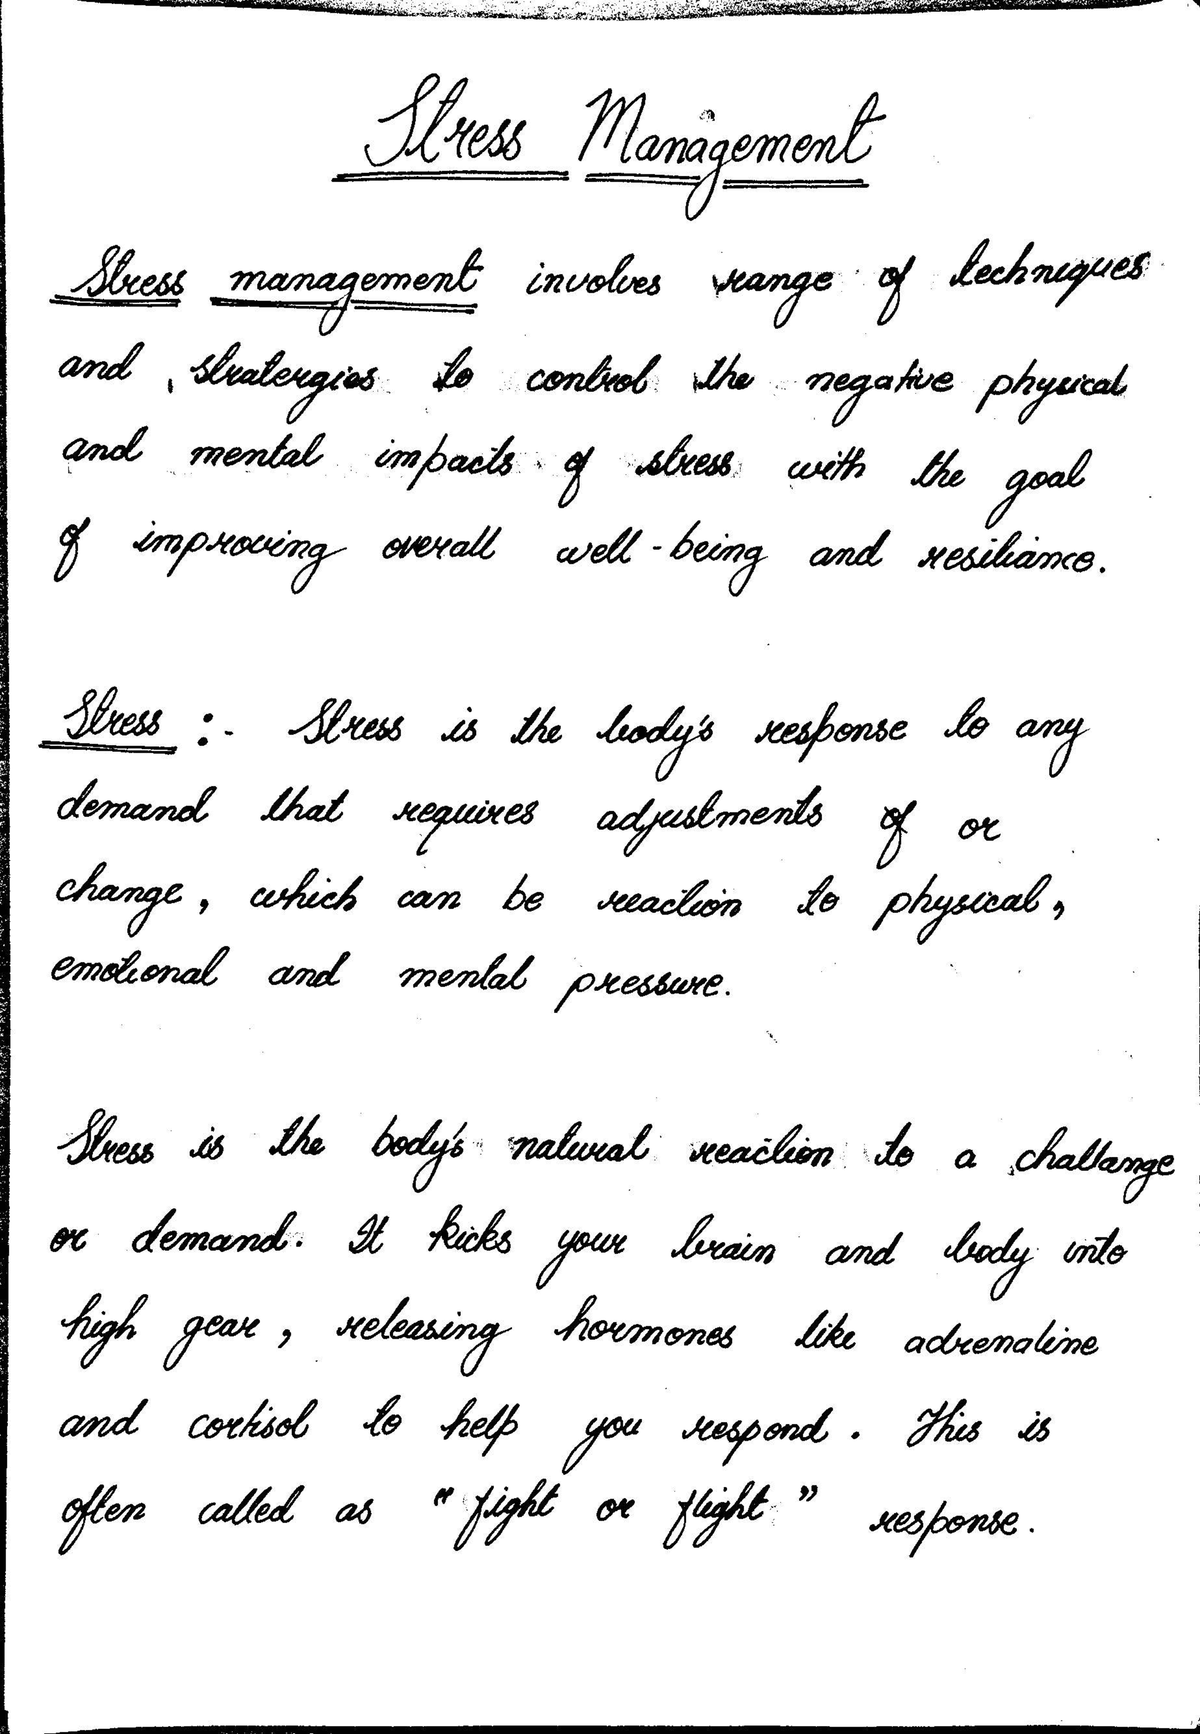 Stress Management
Stress management involves range of techniques
and stratergies to control the negative physical
and mental impacts of stress with the goal
of improving overall well-being and resiliance.
Stress :- Stress is the body's response to any
demand that requires adjustments of or
change, which can be reaction to physical,
emotional and mental pressure.
Stress is the body's natural reaction to a challange
or demand. It kicks your brain and body into
high gear, releasing hormones like adrenaline
and cortisol to help you respond. This is
often called as "fight or flight" response.